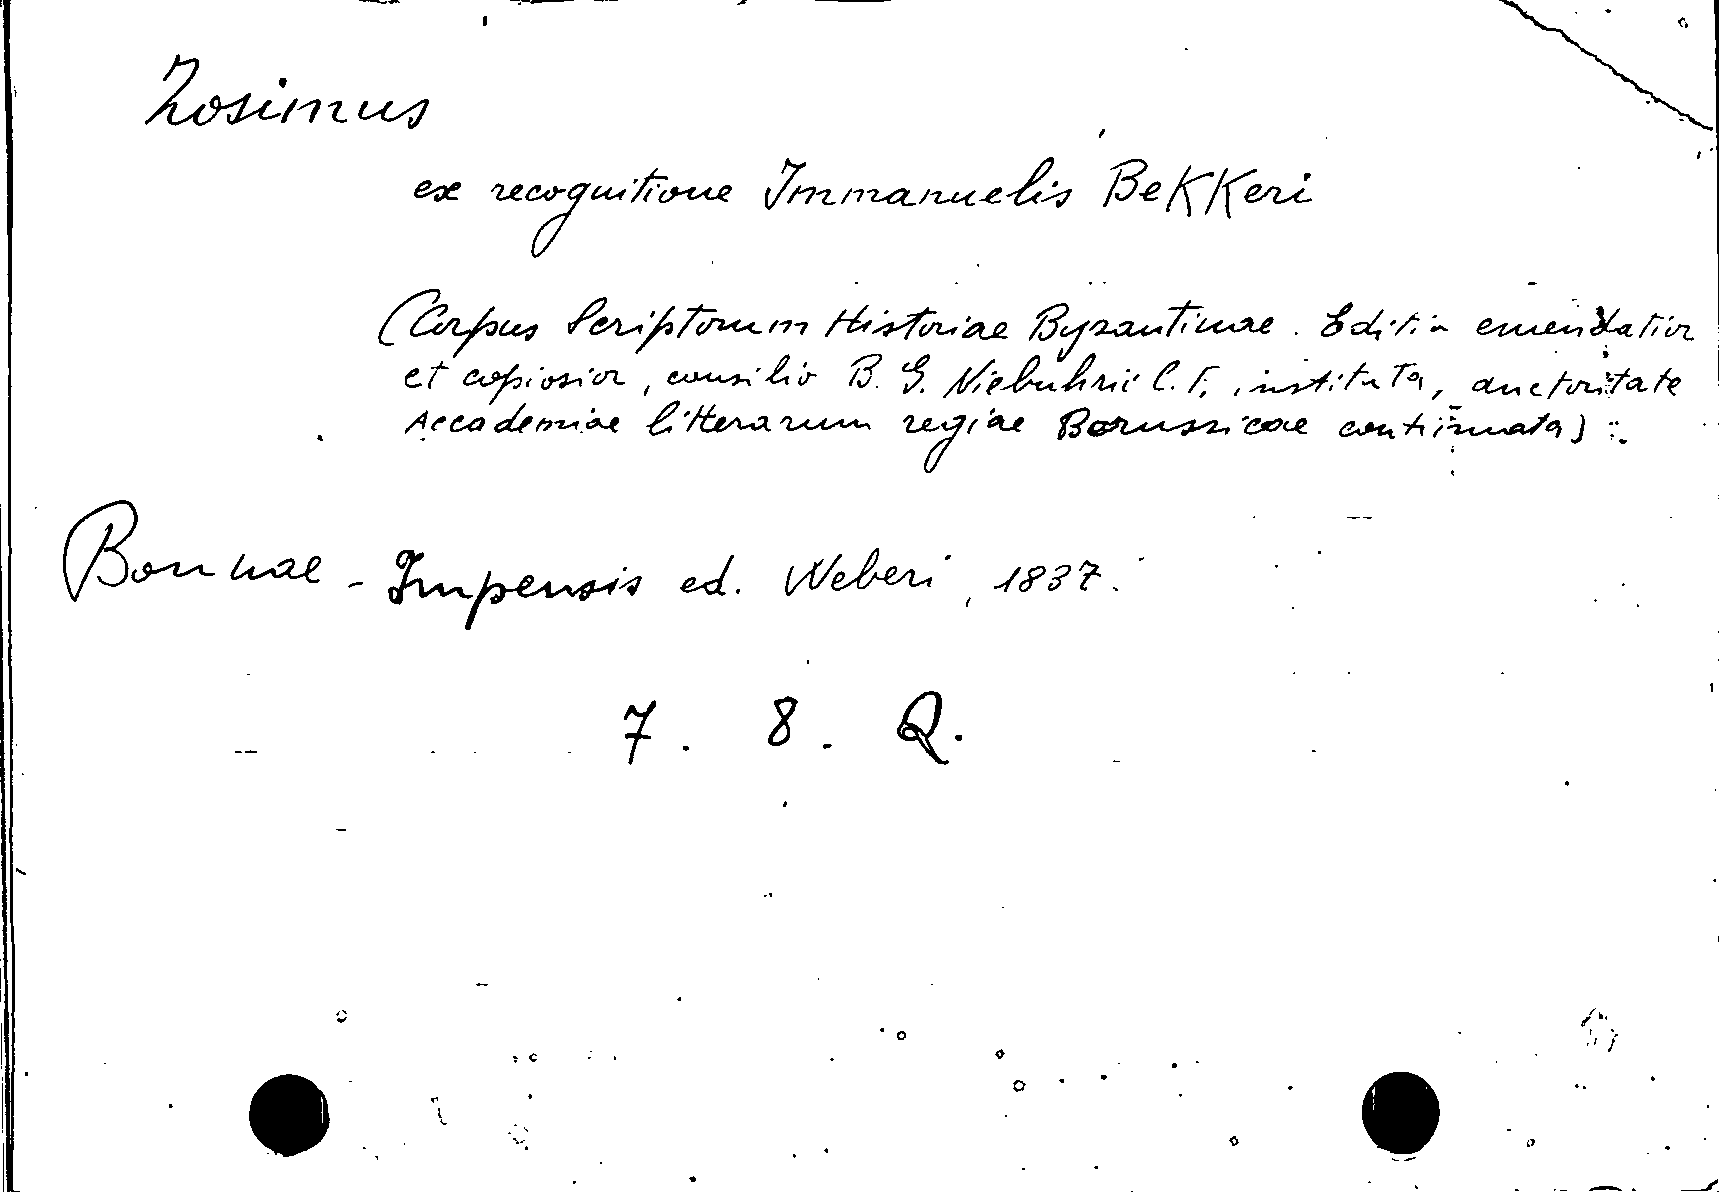 Zosimus
ex recognitione Immanuelis Bekkeri
(Corpus Scriptorum Historiae Byzantinae. Editio emendatior
et copiosior, consilio B. G. Niebuhrii C. F. instituta, auctoritate
Accademiae litterarum regiae Borussicae continuata).
Bonnae - Impensis ed. Weberi, 1837.
7. 8. Q.